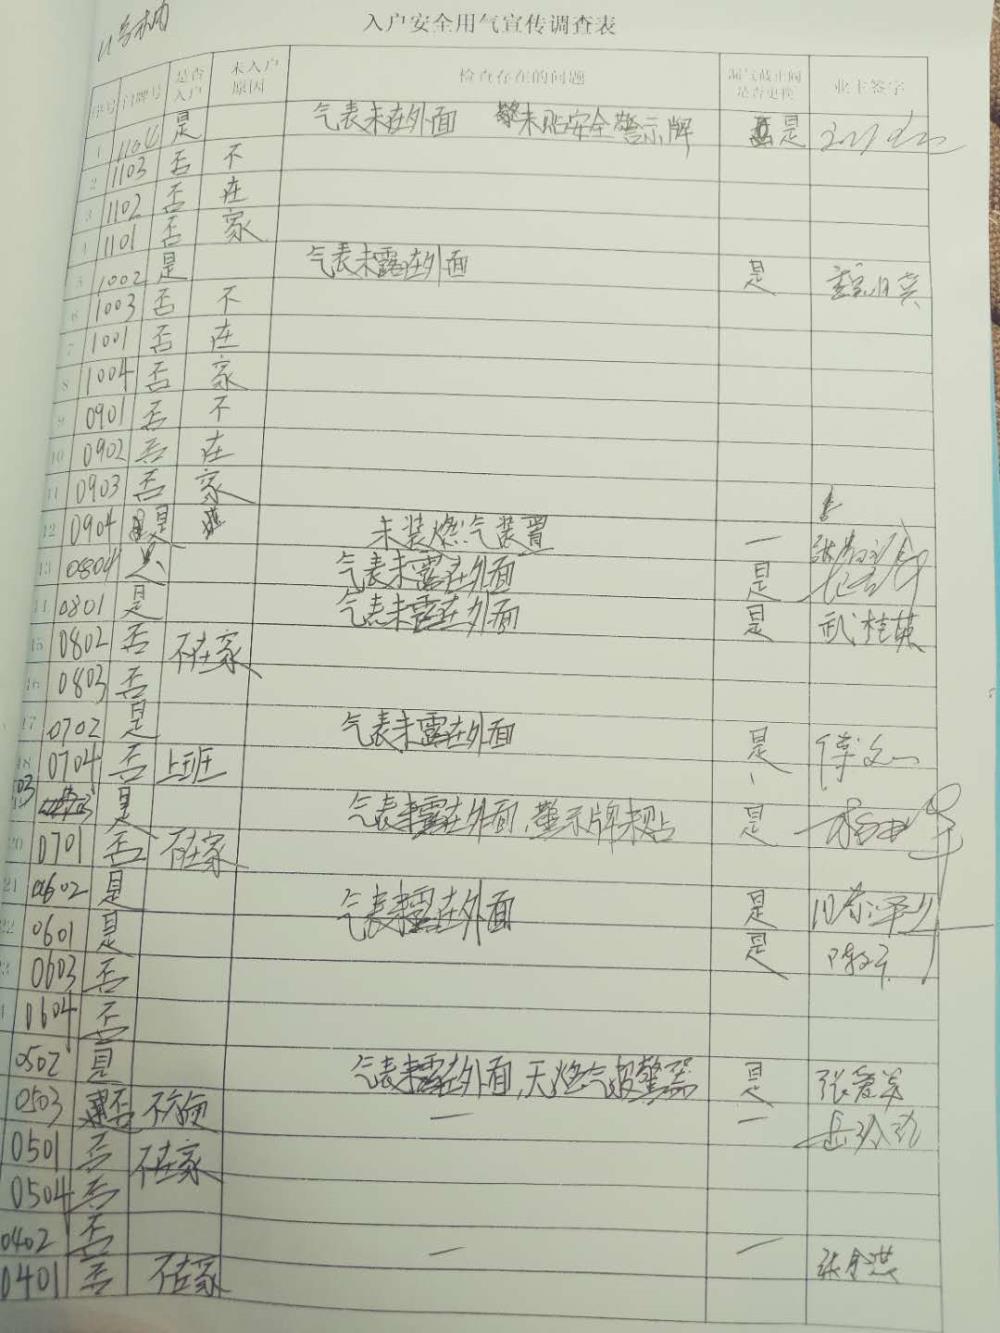 11号楼
入户安全用气宣传调查表
序号 门牌号 是否入户 未入户原因 检查存在的问题 漏气截止阀是否更换 业主签字
1 1104 是 气表未在外面 未贴安全警示牌 是
2 1103 否 不
3 1102 否 在
4 1101 否 家
5 1002 是 气表未露在外面 是
6 1003 否 不
7 1001 否 在
8 1004 否 家
9 0901 否 不
10 0902 否 在
11 0903 否 家
12 0904 是 未装燃气装置 一
13 0804 是 气表未露在外面 是
14 0801 是 气表未露在外面 是 武桂英
15 0802 否 不在家
16 0803 否
17 0702 是 气表未露在外面 是
18 0704 否 上班
03 是 气表未露在外面,警示牌未贴 是
20 0701 否 不在家
21 0602 是 气表未露在外面 是
22 0601 是 是
0603 否
0604 否
0502 是 气表未露在外面,天燃气报警器 是
0503 否 不方便 一 一
0501 否 不在家
0504 否
0402 否 一 一
0401 否 不在家 张金洪